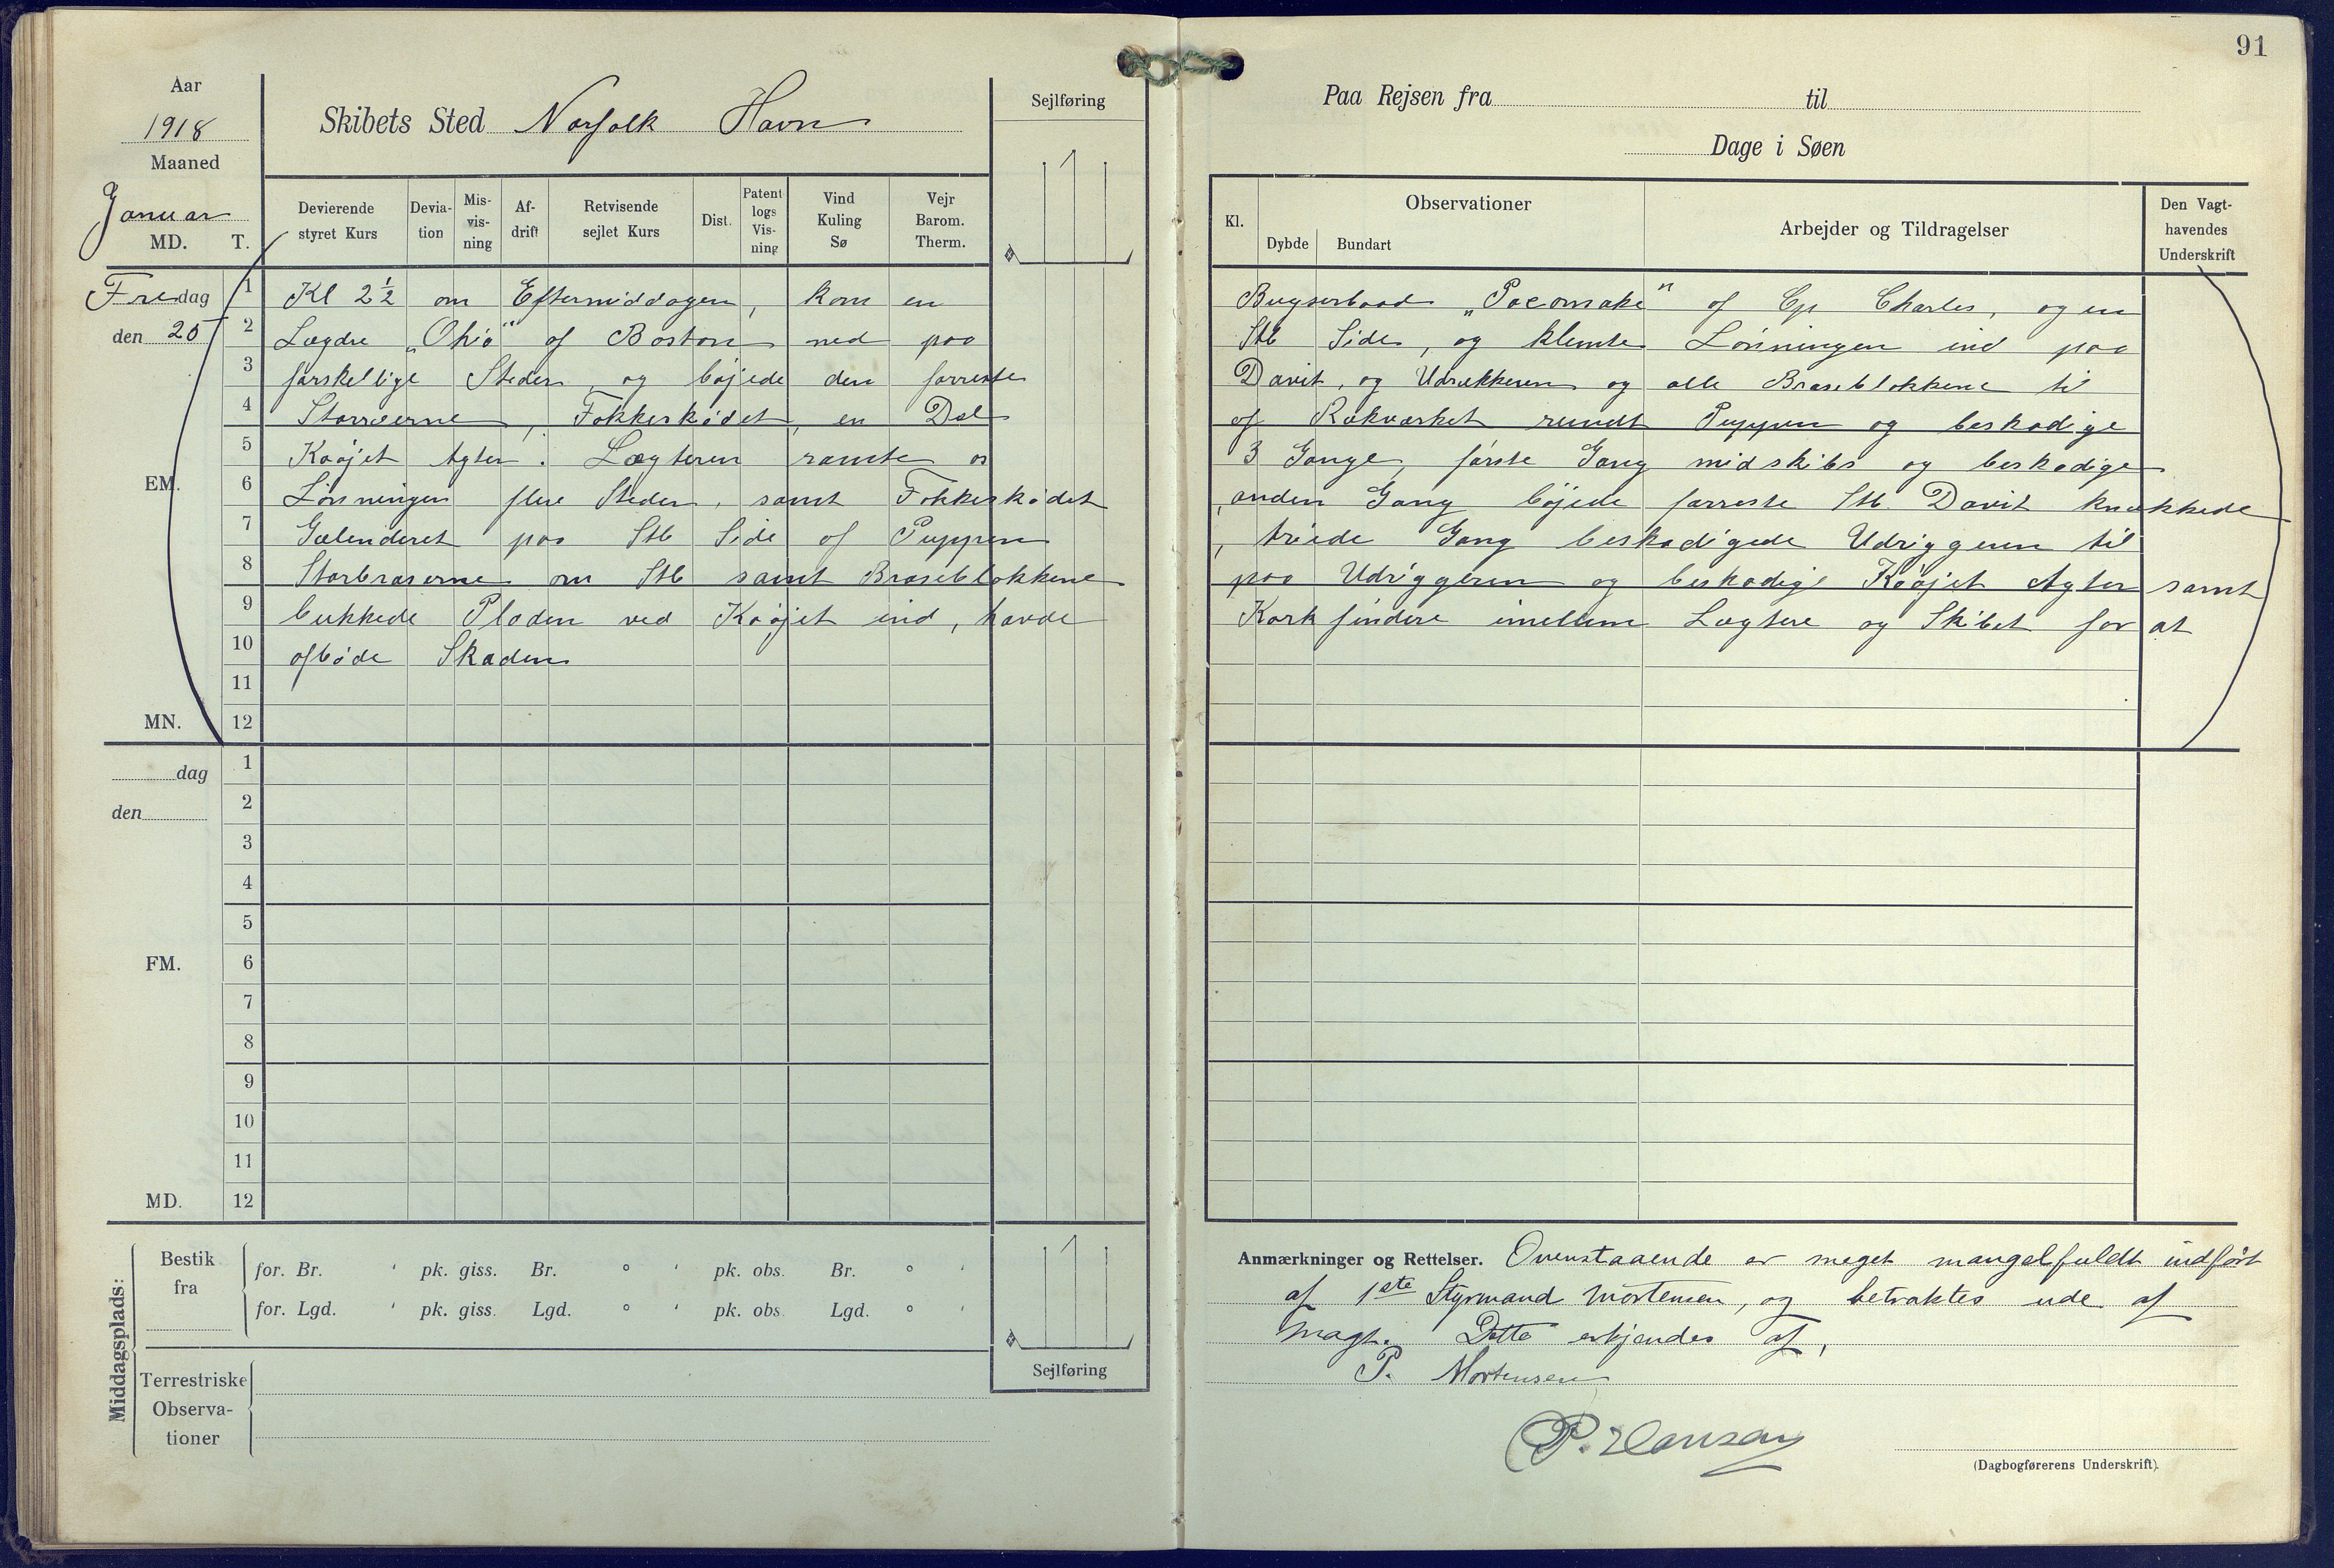 91
Aar
1918
Maaned
Januar
MD. T.
Skibets Sted Norfolk Havn
Sejlføring
Paa Rejsen fra til
Dage i Søen
Devierende styret Kurs
Devia-tion
Mis-vis-ning
Af-drift
Retvisende sejlet Kurs
Dist.
Patent logs Vis-ning
Vind Kuling Sø
Vejr Barom. Therm.
Kl.
Observationer
Dybde Bundart
Arbejder og Tildragelser
Den Vagt-havendes Underskrift
Fredag
den 25
1 Kl 2½ om Eftermiddagen, kom en Bugserbaad „Pocomoke" af Cp Charles, og en
2 Lægdre „Ohio" af Boston ned paa Stb Side, og klemte Lönningen ind paa
3 forskellige Steder, og böjede den forreste Davit, og Udrækkeren og alle Braseblokkene til
4 Storræerne, Fokkesködet, en Del af Rækværket rundt Puppen og beskadige
5 Kööjet Agter. Lægteren ramte os 3 Gange, förste Gang midskibs og beskadige
EM.
6 Lönningen flere Steder, samt Fokkesködet, anden Gang böjede forreste Stb. Davit knækkede
7 Gelenderet paa Stb Side af Puppen, triede Gang beskadigede Udriggeren til
8 Storbraserne om Stb samt Braseblokkene paa Udriggeren og beskadige Kööjet Agter samt
9 bukkede Pladen ved Kööjet ind, havde Korkfindere imellem Lægtere og Skibet for at
10 afböde Skaden
11
MN. 12
dag
den
1
2
3
4
5
FM. 6
7
8
9
10
11
MD. 12
Middagsplads:
Bestik fra
for. Br. ' pk. giss. Br. ° ' pk. obs. Br. ° '
for. Lgd. ' pk. giss. Lgd. ° ' pk. obs. Lgd. ° '
Terrestriske Observa-tioner
Sejlføring
Anmærkninger og Rettelser. Ovenstaaende er meget mangelfuldt indført
af 1ste Styrmand Mortensen, og betraktes ude af
Magt. Dette erkjendes af,
P. Mortensen
P. Hansen
(Dagbogførerens Underskrift).